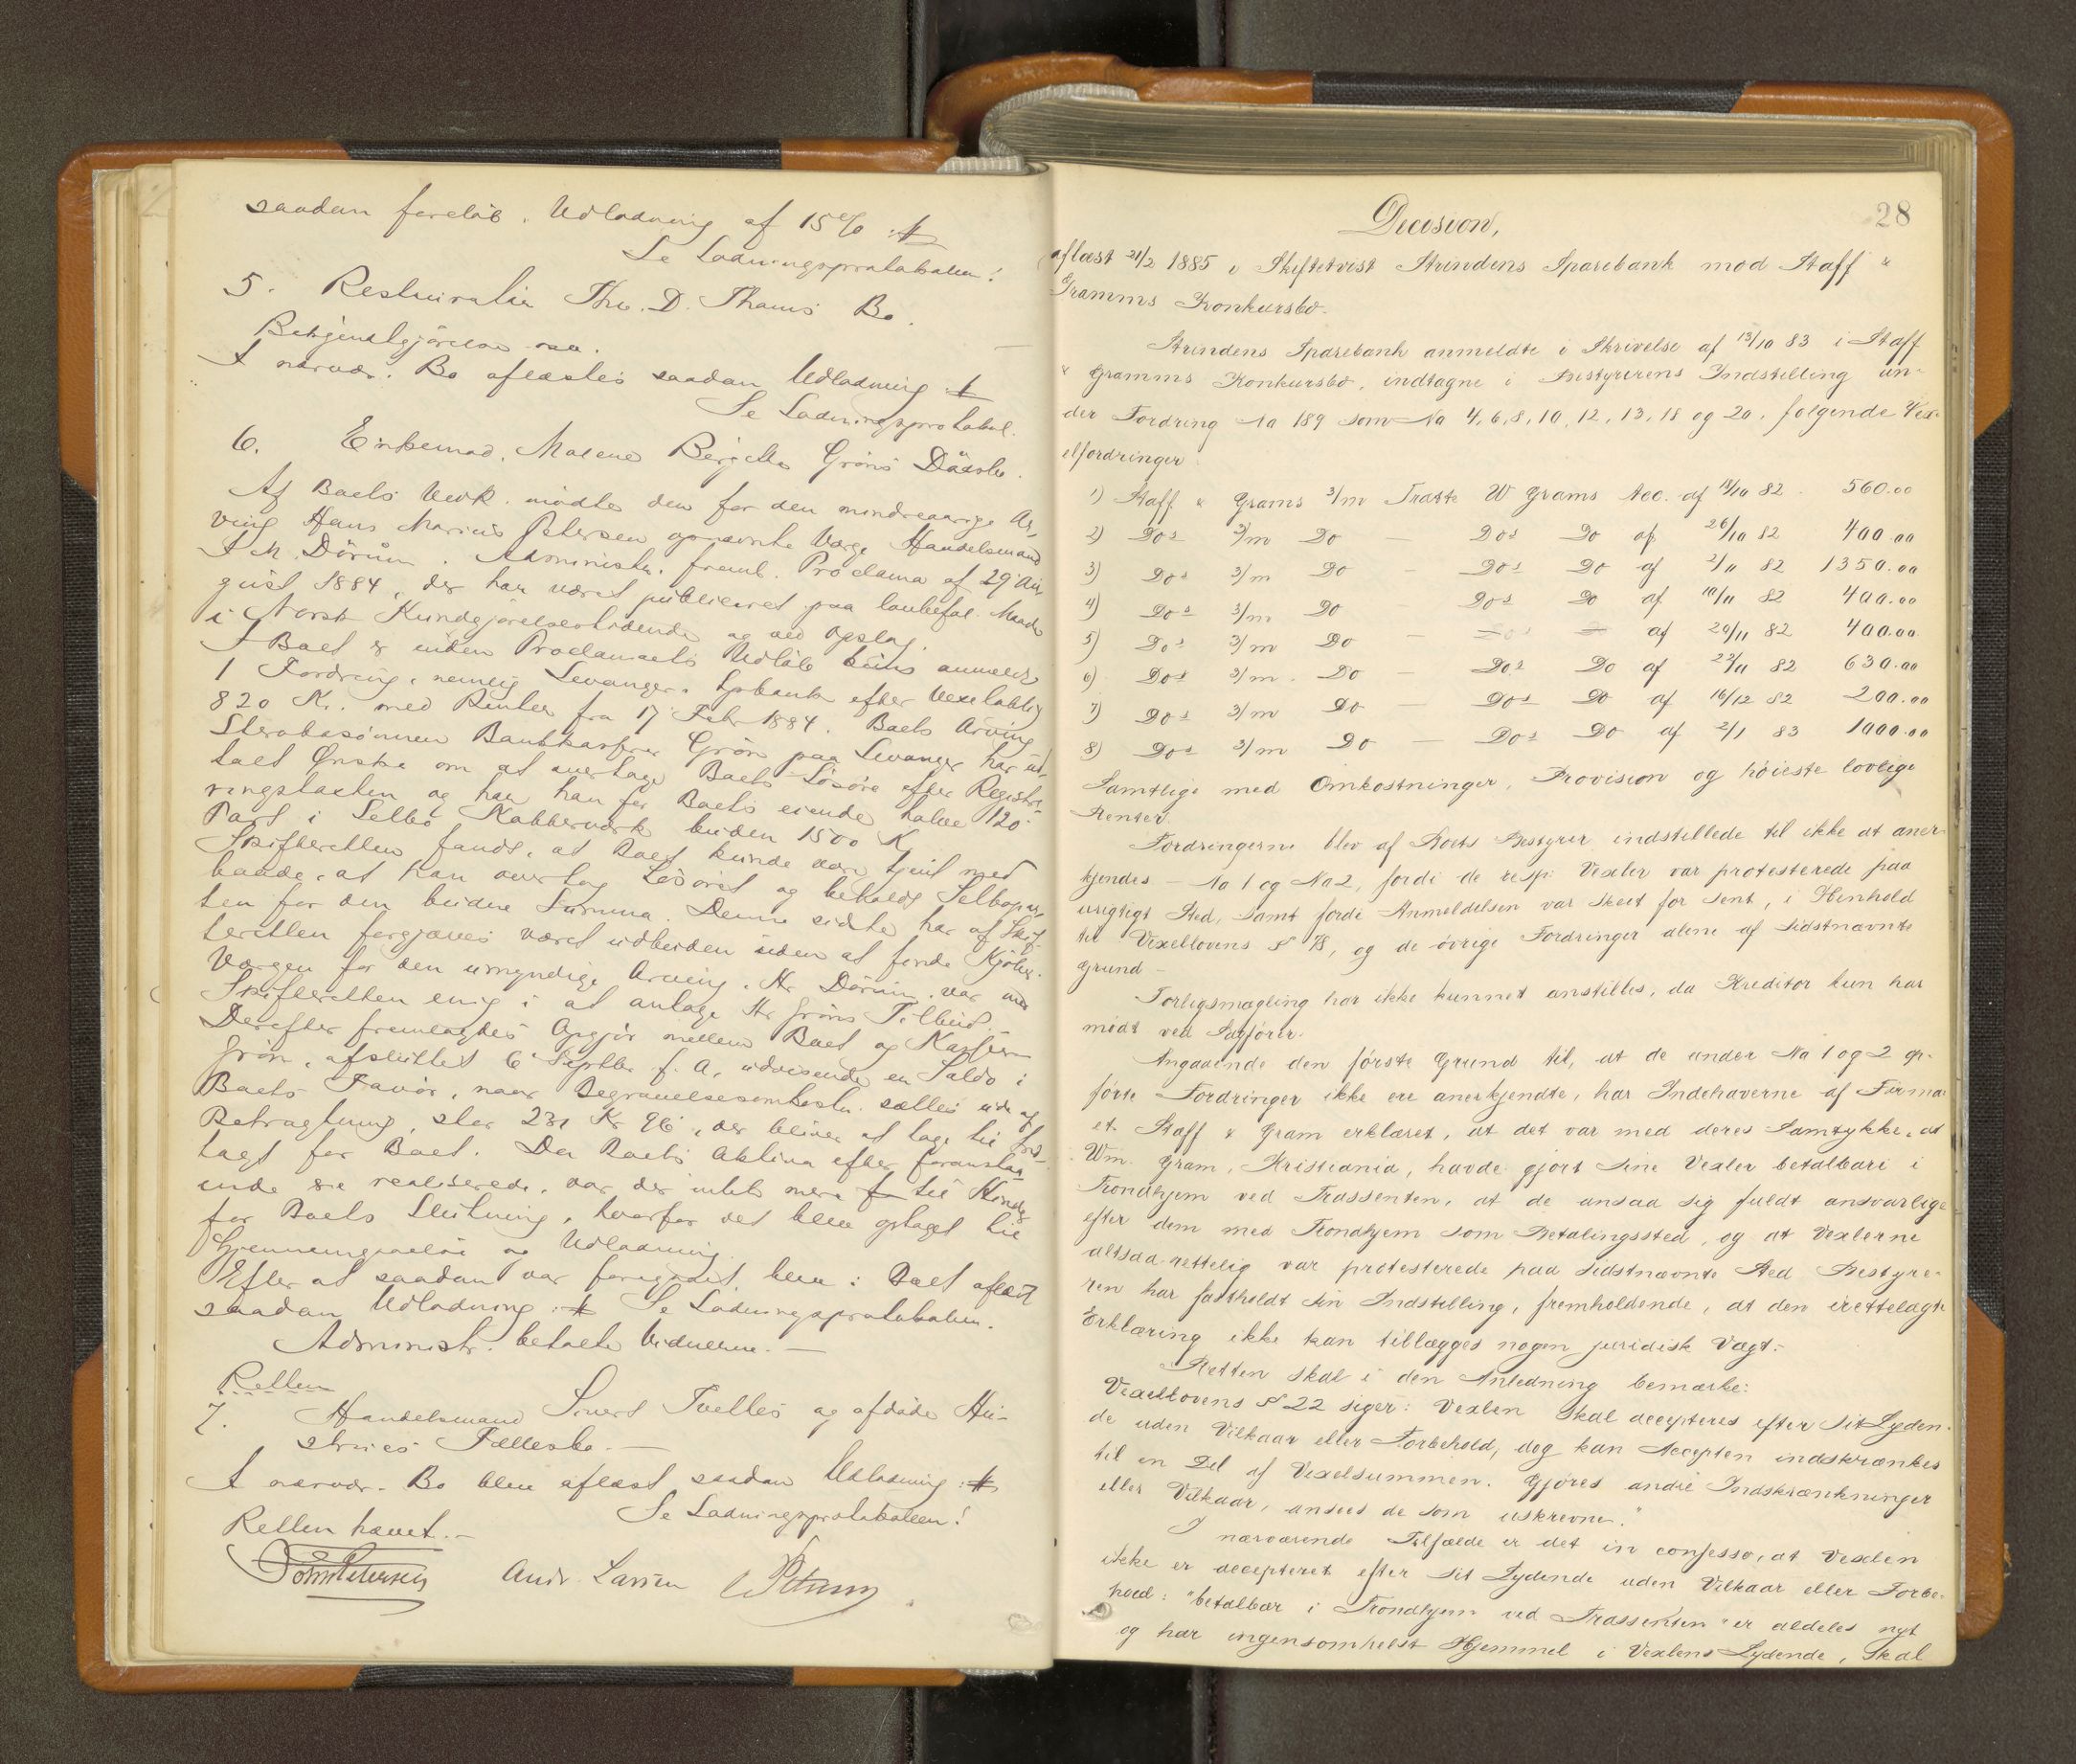 saadan foreløb. Udlodning af 15% :#:
Se Lodningsprotokollen!
5. Restauratør Thv. D. Thams Bo.
Bekjendtgjørelse
I nærvær. Bo aflæstes saadan Udlodning :#:
Se Lodningsprotokol.
6. Enkemad. Malene Bergitte Grøns Dødsbo.
Af Boets Vedk. mødte den for den mindreaarige Ar-
ving Hans Marius Petersen opnævnte Værge Handelsmand
I M. Dörum. Administr. freml. Proclama af 29 Au-
gust 1884, der har været publiceret paa lovbefal. Maade
i Norsk Kundgjørelsestidende og ved Opslag.
I Boet er inden Proclamaets Udløb kuns anmeldt
1 Fordring, nemlig Levanger Spbank efter Vexelobl
820 Kr. med Renter fra 17 Febr 1884. Boets Arving
Sterbosønnen Bankkasserer Grøn paa Levanger har ud-
talt Ønske om at overtage Boets Løsøre efter Registre-
ringstaxten og har han for Boets eiende halve 120
Part i Selbo Kobberværk buden 1500 K.
Skifteretten fandt, at Boet kunde være tjent med
baade, at han overtog Løsøret og beholdt Selbopar-
ten for den budne Summa. Denne sidste har af Skif-
teretten forgjæves været udbuden uden at finde Kjøber.
Værgen for den umyndige Arving, Hr Dörum, var med
Skifteretten enig i at antage Hr Grøns Tilbud.
Derefter fremlagdes Opgjør mellem Boet og Kasserer
Grøn, afsluttet 6 Septbr f. A, udvisende en Saldo i
Boets Favør, naar Begravelsesomkostn. sættes ude af
Betragtning, stor 231 Kr 96, der bliver at tage til Ind-
tægt for Boet. Da Boets Aktiva efter foranstaa-
ende ere realiserede, var der intet mere til Hinder
for Boets Slutning, hvorfor det blev optaget til
Gjennemgaaelse og Udlodning.
Efter at saadant var foregaaet, blev i Boet aflæst
saadan Udlodning :#: Se Lodningsprotokollen.
Administr. betalte Vidnerne. —
Retten
7. Handelsmand Sivert Tvettes og afdøde Hu-
strues Fællesbo. —
I nærvær. Bo blev aflæst saadan Udlodning :#:
Se Lodningsprotokollen!
Retten hævet. —
Andr. Larsen
28
Decision,
aflæst 21/2 1885 i Skiftetvist Strindens Sparebank mod Staff &
Gramms Konkursbo.
Strindens Sparebank anmeldte i Skrivelse af 13/10 83 i Staff
& Gramms Konkursbo, indtagne i Bestyrerens Indstilling un-
der Fordring No 189 som No 4, 6, 8, 10, 12, 13, 18 og 20, følgende Vex-
elfordringer
1) Staff & Grams 3/m Tratte W Grams Acc. af 14/10 82. 560.00
2) Dos 3/m Do — Dos Do af 26/10 82 400.00
3) Dos 3/m Do — Dos Do af 2/11 82 1350.00
4) Dos 3/m Do — Dos Do af 10/11 82 400.00
5) Dos 3/m Do — Dos Do af 20/11 82 400.00
6) Dos 3/m. Do — Dos Do af 22/11 82 630.00
7) Dos 3/m Do — Dos Do af 16/12 82 200.00
8) Dos 3/m Do — Dos Do af 2/1 83 1000.00
Samtlige med Omkostninger, Provision og høieste lovlige
Renter.
Fordringerne blev af Boets Bestyrer indstillede til ikke at aner-
kjendes — No 1 og No 2, fordi de resp. Vexler var protesterede paa
urigtigt Sted, samt fordi Anmeldelsen var skeet for sent, i Henhold
til Vexellovens § 78, og de øvrige Fordringer alene af sidstnævnte
Grund —
Forligsmægling har ikke kunnet anstilles, da Kreditor kun har
mødt ved Sagfører.
Angaaende den første Grund til, at de under No 1 og 2 op-
førte Fordringer ikke ere anerkjendte, har Indehaverne af Firma-
et Staff & Gram erklæret, at det var med deres Samtykke, at
Wm. Gram, Kristiania, havde gjort sine Vexler betalbare i
Trondhjem ved Trassenten, at de ansaa sig fuldt ansvarlige
efter dem med Trondhjem som Betalingssted, og at Vexlerne
altsaa rettelig var protesterede paa sidstnævnte Sted Bestyre-
ren har fastholdt sin Indstilling, fremholdende, at den irettelagte
Erklæring ikke kan tillægges nogen juridisk Vægt. —
Retten skal i den Anledning bemærke:
Vexellovens § 22 siger: Vexlen skal accepteres efter sit Lyden-
de uden Vilkaar eller Forbehold, dog kan Accepten indskrænkes
til en Del af Vexelsummen. Gjøres andre Indskrænkninger
eller Vilkaar, ansees de som uskrevne."
I nærværende Tilfælde er det in confesso, at Vexlen
ikke er accepteret efter sit Lydende uden Vilkaar eller Forbe-
hold: "betalbar i Trondhjem ved Trassenten" er aldeles nyt
og har ingensomhelst Hjemmel i Vexlens Lydende, skal